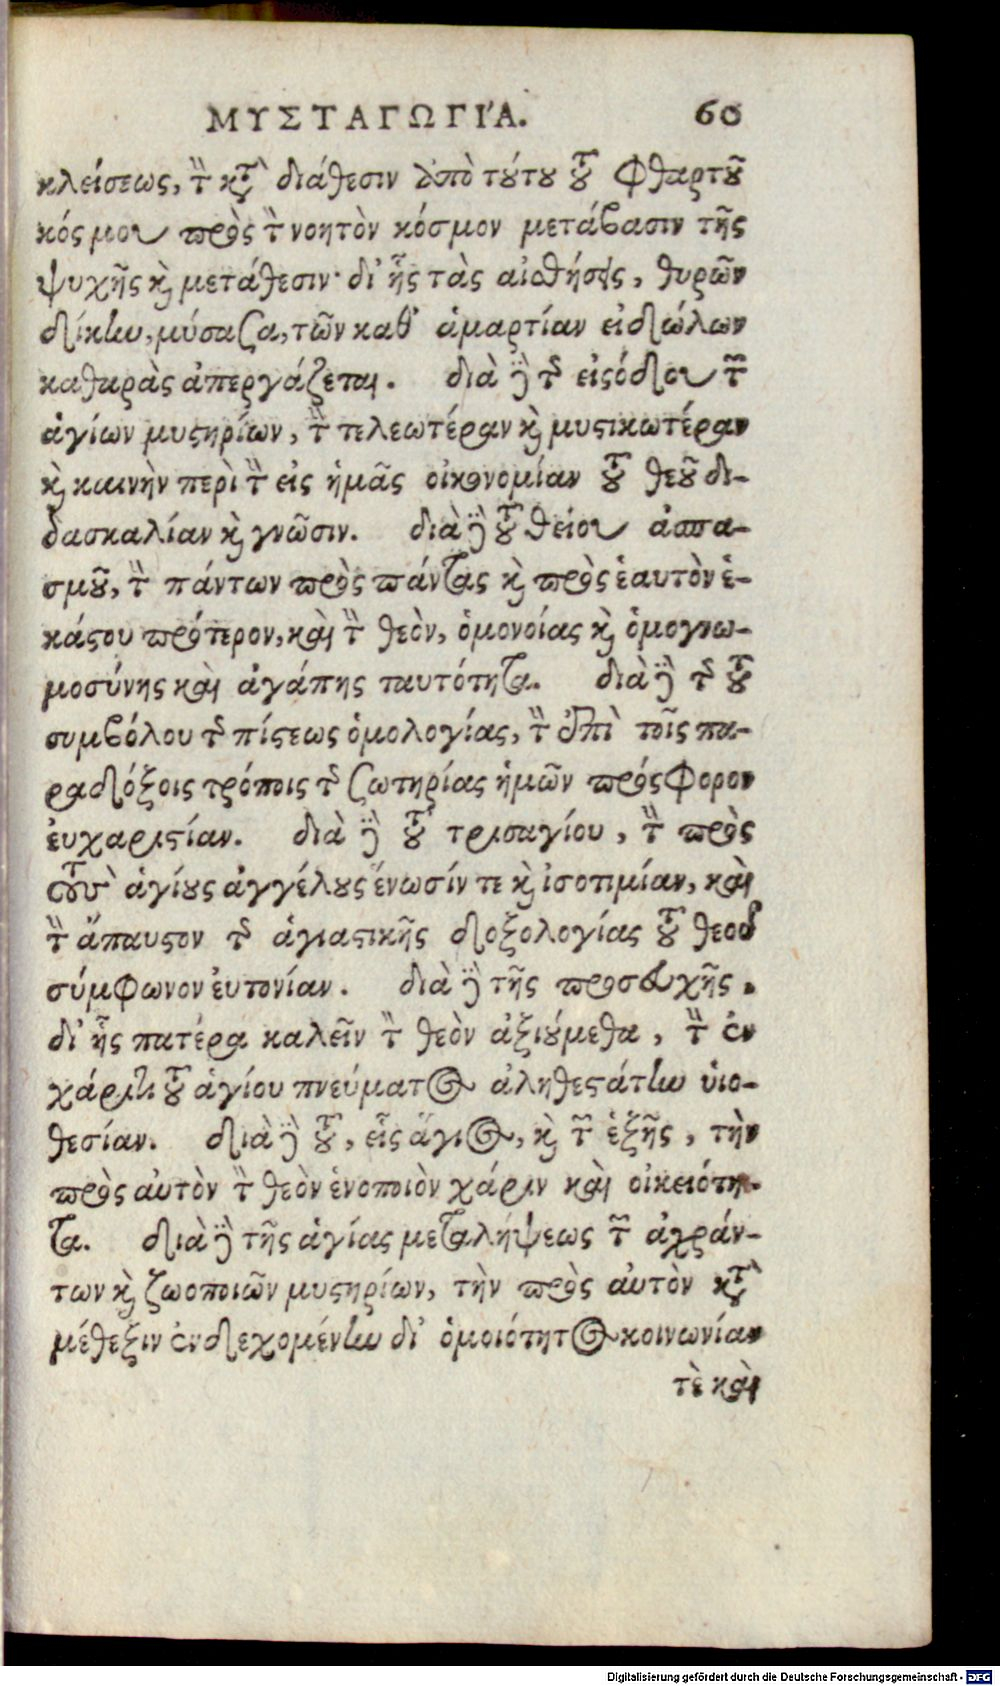 ΜΥΣΤΑΓΩΓΙΆ. 60
κλείσεως, τὴν κατὰ διάθεσιν ἀπὸ τούτου τοῦ φθαρτοῦ
κόσμου πρὸς τὸν νοητὸν κόσμον μετάβασιν τῆς
ψυχῆς καὶ μετάθεσιν· δι' ἧς τὰς αἰσθήσεις, θυρῶν
δίκην, μύσασα, τῶν καθ' ἁμαρτίαν εἰδώλων
καθαρὰς ἀπεργάζεται. διὰ δὲ τῆς εἰσόδου τῶν
ἁγίων μυστηρίων, τὴν τελεωτέραν καὶ μυστικωτέραν
καὶ καινὴν περὶ τῆς εἰς ἡμᾶς οἰκονομίαν τοῦ θεοῦ δι-
δασκαλίαν καὶ γνῶσιν. διὰ δὲ τοῦ θείου ἀσπα-
σμοῦ, τὴν πάντων πρὸς πάντας καὶ πρὸς ἑαυτὸν ἑ-
κάστου πρότερον, καὶ τὸν θεὸν, ὁμονοίας καὶ ὁμογνω-
μοσύνης καὶ ἀγάπης ταυτότητα. διὰ δὲ τῆς τοῦ
συμβόλου τῆς πίστεως ὁμολογίας, τὴν ἐπὶ τοῖς πα-
ραδόξοις τρόποις τῆς σωτηρίας ἡμῶν πρόσφορον
ἐυχαριστίαν. διὰ δὲ τοῦ τρισαγίου, τὴν πρὸς
τοὺς ἁγίους ἀγγέλους ἕνωσίν τε καὶ ἰσοτιμίαν, καὶ
τὴν ἄπαυστον τῆς ἁγιαστικῆς δοξολογίας τοῦ θεοῦ
σύμφωνον ἐυτονίαν. διὰ δὲ τῆς προσευχῆς,
δι' ἧς πατέρα καλεῖν τὸν θεὸν ἀξιούμεθα, τὴν ἐν
χάριτι τοῦ ἁγίου πνεύματος ἀληθεστάτην υἱο-
θεσίαν. διὰ δὲ τοῦ, εἷς ἅγιος, καὶ τῶν ἑξῆς, τὴν
πρὸς αὐτὸν τὸν θεὸν ἑνοποιὸν χάριν καὶ οἰκειότη-
τα. διὰ δὲ τῆς ἁγίας μεταλήψεως τῶν ἀχράν-
των καὶ ζωοποιῶν μυστηρίων, τὴν πρὸς αὐτὸν κατὰ
μέθεξιν ἐνδεχομένην δι' ὁμοιότητος κοινωνίαν
τὲ καὶ
Digitalisierung gefördert durch die Deutsche Forschungsgemeinschaft - DFG